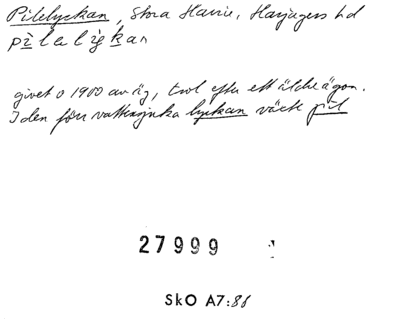 Pilelyckan, Stora Harrie, Harjagers hd
pilalyckan
givet o 1900 av äg, trol efter ett äldre ägon.
I den förr vattensjuka lyckan växte pil
27999
SkO A7:88